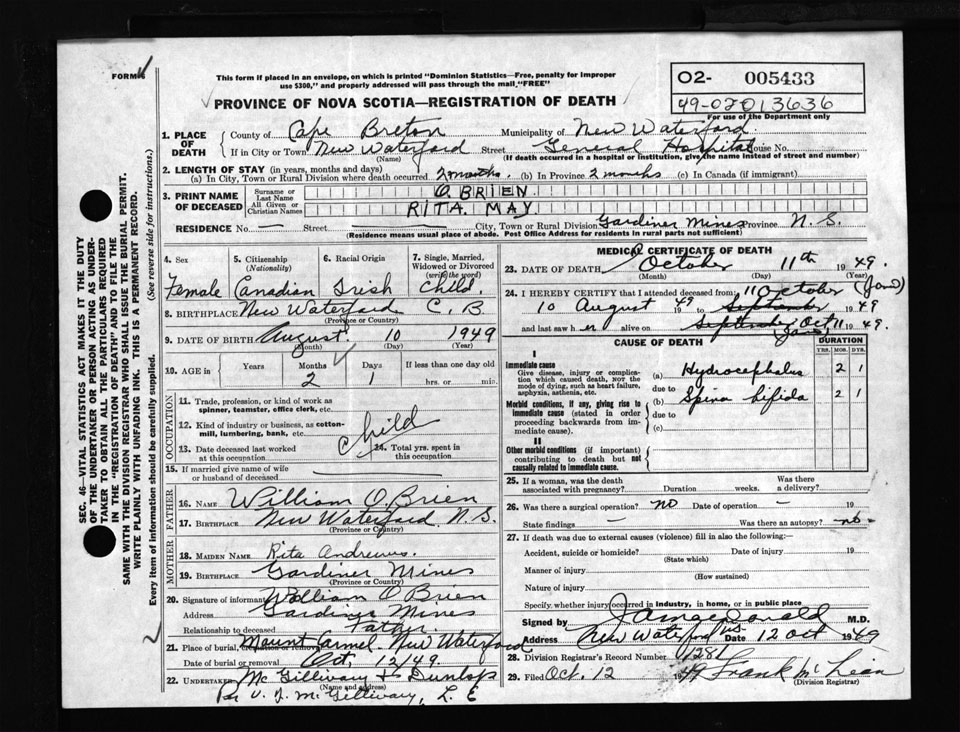 FORM 6
This form if placed in an envelope, on which is printed "Dominion Statistics—Free, penalty for improper
use $300," and properly addressed will pass through the mail "FREE"
PROVINCE OF NOVA SCOTIA—REGISTRATION OF DEATH
O2- 005433
49-02013636
For use of the Department only
1. PLACE OF DEATH
County of Cape Breton Municipality of New Waterford
If in City or Town New Waterford Street General Hospital House No.
(Name) (If death occurred in a hospital or institution, give the name instead of street and number)
2. LENGTH OF STAY (in years, months and days)
(a) In City, Town or Rural Division where death occurred 2 months. (b) In Province 2 months (c) In Canada (if immigrant)
3. PRINT NAME OF DECEASED
Surname or Last Name O BRIEN
All Given or Christian Names RITA. MAY.
RESIDENCE No. — Street — City, Town or Rural Division Gardiner Mines Province N. S.
(Residence means usual place of abode. Post Office Address for residents in rural parts not sufficient)
4. Sex 5. Citizenship (Nationality) 6. Racial Origin 7. Single, Married, Widowed or Divorced (write the word)
Female Canadian Irish Child.
8. BIRTHPLACE New Waterford C. B.
(Province or Country)
9. DATE OF BIRTH August 10 1949
(Month) (Day) (Year)
10. AGE in Years Months Days If less than one day old
2 1 hrs. or min.
OCCUPATION
11. Trade, profession, or kind of work as
spinner, teamster, office clerk, etc.
12. Kind of industry or business, as cotton-
mill, lumbering, bank, etc.
Child
13. Date deceased last worked
at this occupation
14. Total yrs. spent in
this occupation
15. If married give name of wife
or husband of deceased
FATHER
16. NAME William O Brien
17. BIRTHPLACE New Waterford N. S.
(Province or Country)
MOTHER
18. MAIDEN NAME Rita Andrews.
19. BIRTHPLACE Gardiner Mines
(Province or Country)
20. Signature of informant William O Brien
Address Gardiner Mines
Relationship to deceased Father
21. Place of burial, cremation or removal Mount Carmel. New Waterford
Date of burial or removal Oct. 12/49.
22. UNDERTAKER McGillivary & Dunlop
(Name and address)
Per V. J. McGillivary, L. E
MEDICAL CERTIFICATE OF DEATH
23. DATE OF DEATH October 11th 1949.
(Month) (Day) (Year)
24. I HEREBY CERTIFY that I attended deceased from:
11 October
10 August 1949 to September 1949
and last saw her alive on September Oct 11 1949.
CAUSE OF DEATH
DURATION
YRS. MOS. DYS.
I
Immediate cause
Give disease, injury or complica-
tion which caused death, NOT the
mode of dying, such as heart failure,
asphyxia, asthenia, etc.
(a) Hydrocephalus 2 1
due to
Morbid conditions, if any, giving rise to
immediate cause (stated in order
proceeding backwards from im-
mediate cause).
(b) Spina bifida 2 1
due to
(c)
II
Other morbid conditions (if important)
contributing to death but not
causally related to immediate cause.
25. If a woman, was the death
associated with pregnancy? Duration weeks. Was there
a delivery?
26. Was there a surgical operation? no Date of operation — 19
State findings — Was there an autopsy? no
27. If death was due to external causes (violence) fill in also the following:—
Accident, suicide or homicide? Date of injury 19
(State which)
Manner of injury
(How sustained)
Nature of injury
Specify, whether injury occurred in industry, in home, or in public place
Signed by J A MacDonald M.D.
Address New Waterford NS. Date 12 Oct 1949
28. Division Registrar's Record Number 1281
29. Filed Oct. 12 1949 Frank McLean
(Division Registrar)
SEC. 46—VITAL STATISTICS ACT MAKES IT THE DUTY
OF THE UNDERTAKER OR PERSON ACTING AS UNDER-
TAKER TO OBTAIN ALL THE PARTICULARS REQUIRED
IN THE "REGISTRATION OF DEATH" AND TO FILE THE
SAME WITH THE DIVISION REGISTRAR WHO SHALL ISSUE THE BURIAL PERMIT.
WRITE PLAINLY WITH UNFADING INK. THIS IS A PERMANENT RECORD.
Every item of information should be carefully supplied. (See reverse side for instructions.)